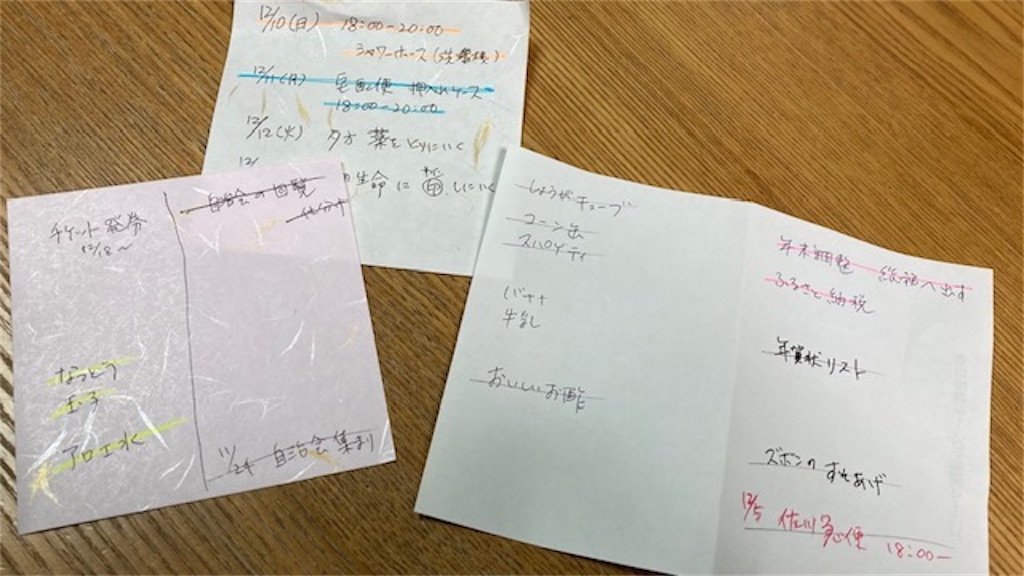 12/10(日) 18:00-20:00
シャワーホース(洗着後)
12/11(月) 宅配便 押入れケース
18:00-20:00
12/12(火) 夕方 薬をとりにいく
12/
生命に 印 しにいく
チケット発券
12/18〜
なっとう
玉子
アロエ水
自治会の回覧
仕分け
11/24 自治会集まり
しょうがチューブ
コーン缶
スパゲティ
バナナ
牛乳
おいしいお酢
年末調整 総務へ出す
ふるさと納税
年賀状リスト
ズボンのすそあげ
12/5 佐川急便 18:00-